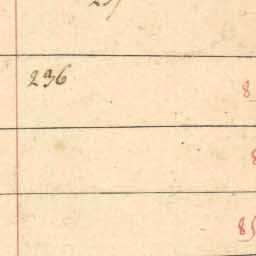 236
8
8
85